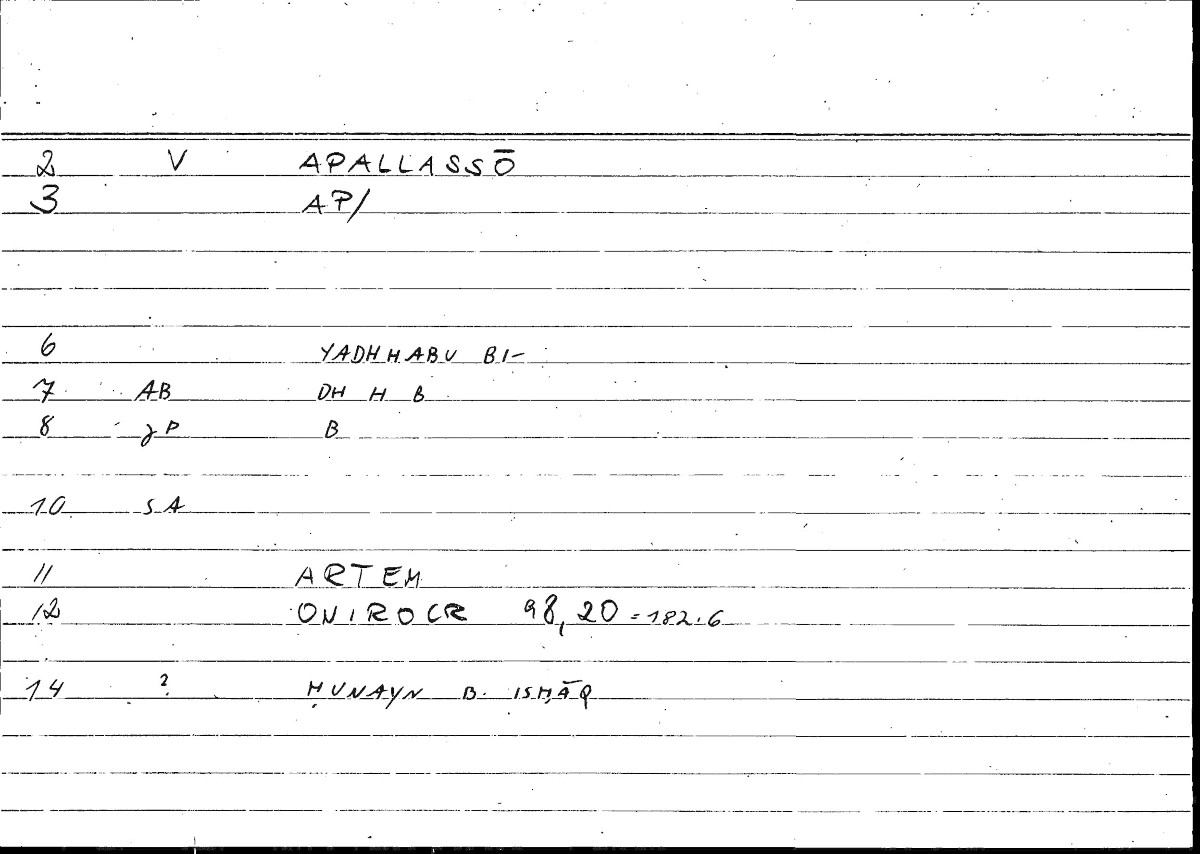 2 V APALLASSŌ
3 AP/
6 YADHHABU BI-
7 AB DH H B
8 B
10 SA
11 ARTEM
12 ONIROCR 98,20 = 182.6
14 ? ḤUNAYN B. ISḤĀQ